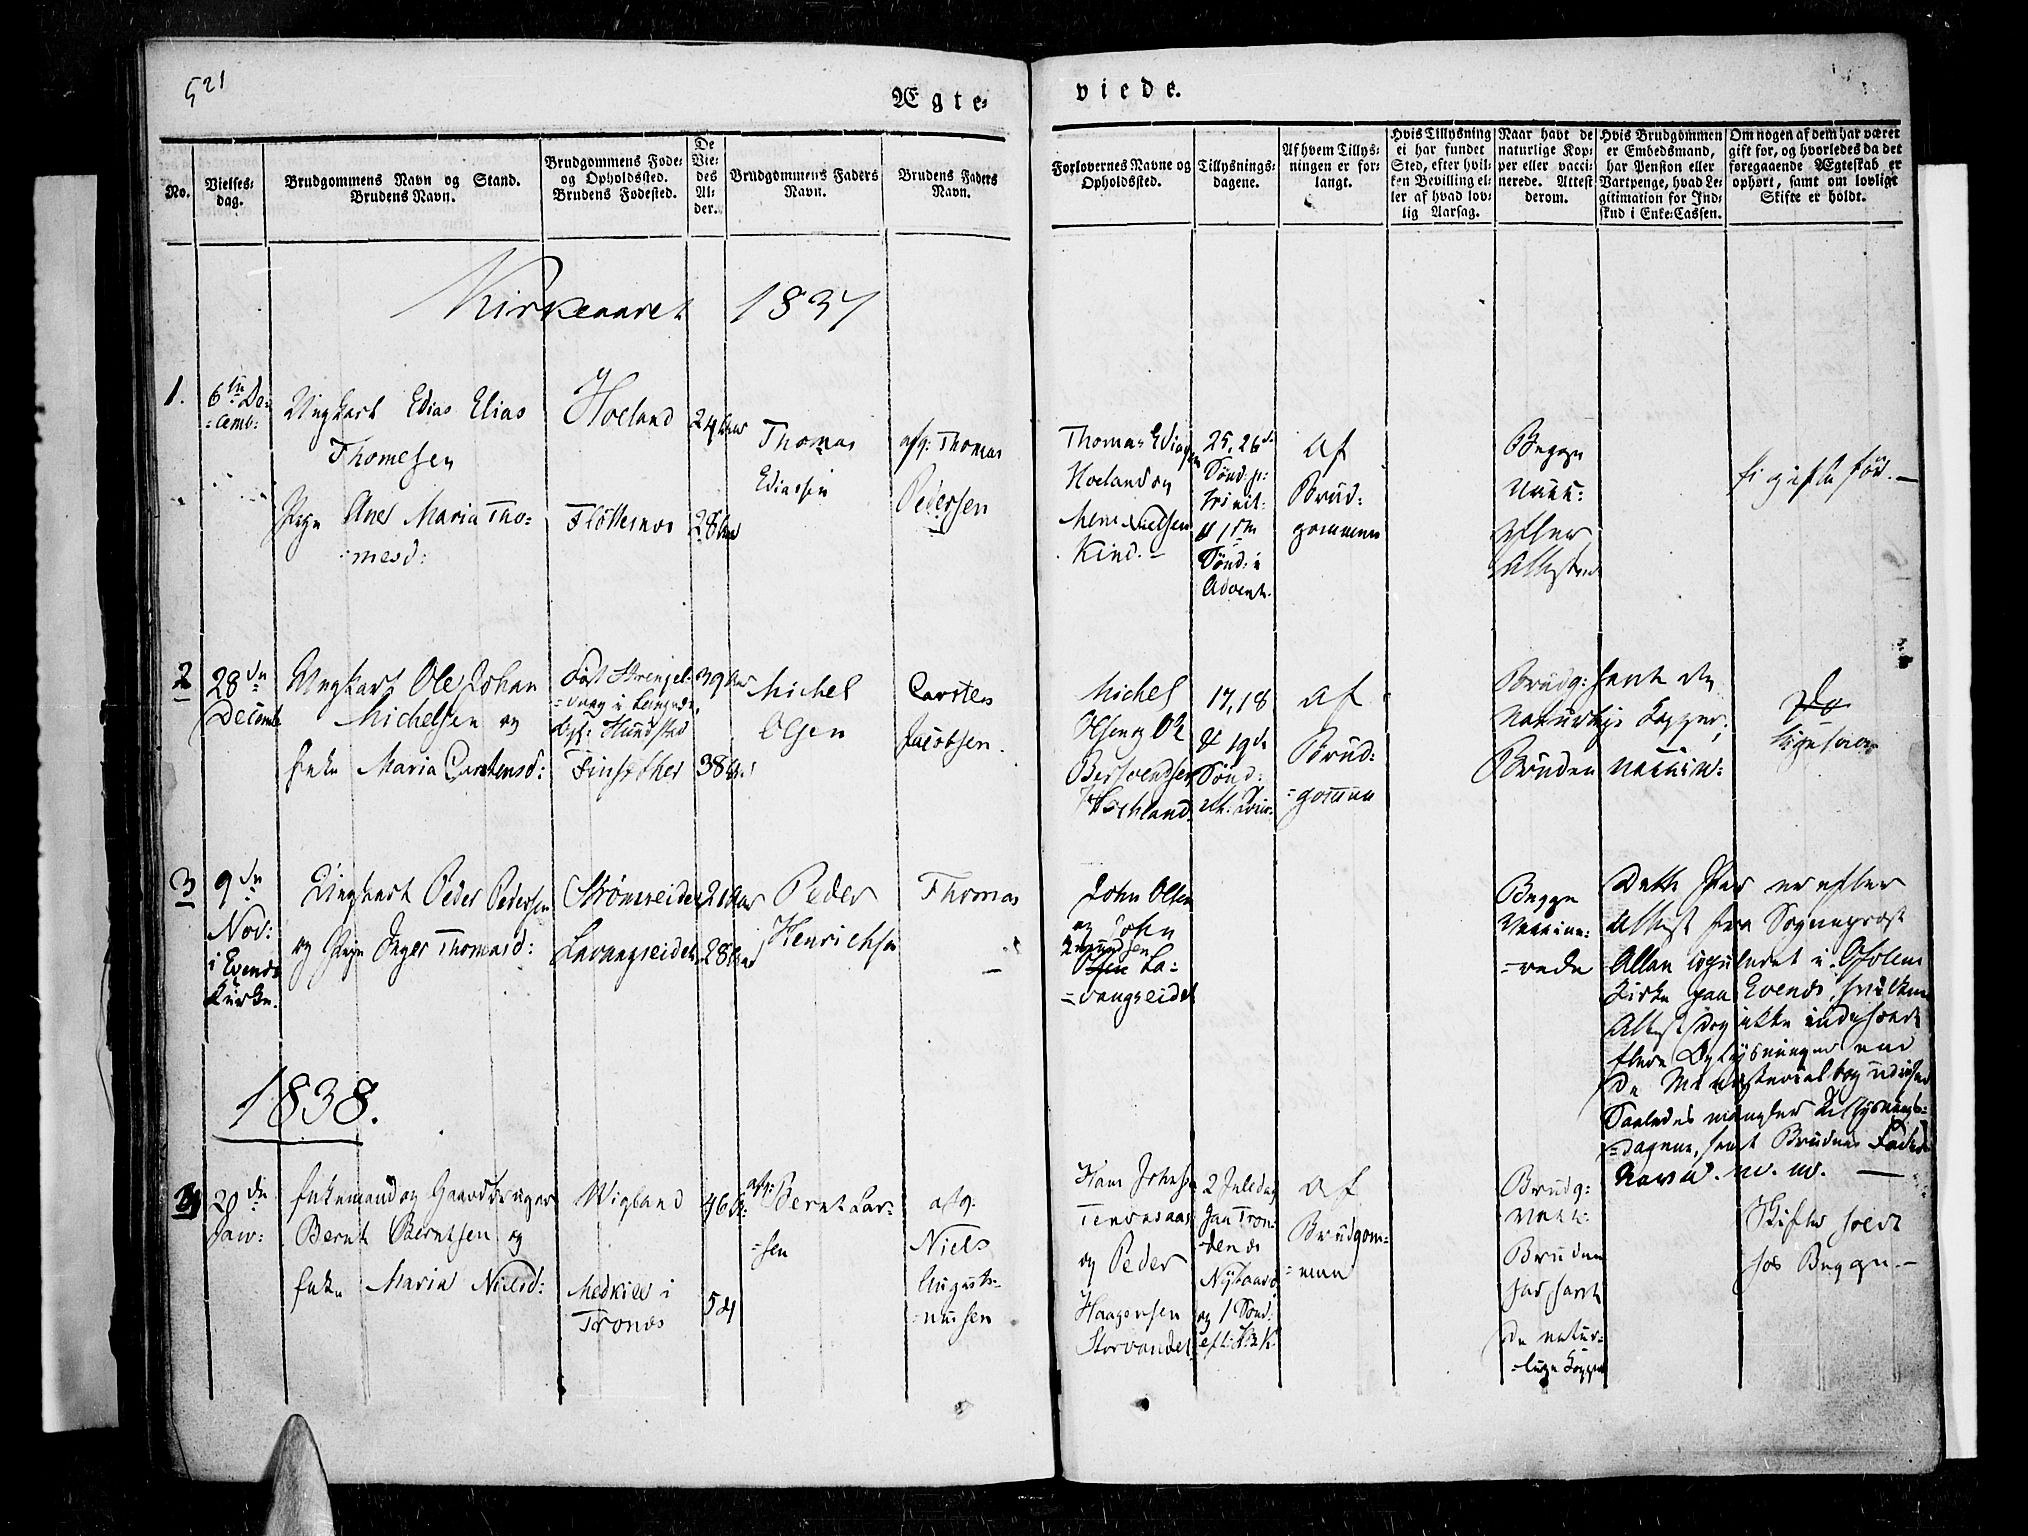 521
Ægte=
viede.
No.
Vielses=
dag.
Brudgommens Navn og Stand.
Brudens Navn.
Brudgommens Føde=
og Opholdssted.
Brudens Fødested.
De
Vie=
des
Al=
der.
Brudgommens Faders
Navn.
Brudens Faders
Navn.
Forlovernes Navne og
Opholdssted.
Tillysnings=
dagene.
Af hvem Tillys=
ningen er for=
langt.
Hvis Tillysning
ei har fundet
Sted, efter hvil=
ken Bevilling el=
ler af hvad lov=
lig Aarsag.
Naar havt de
naturlige Kop=
per eller vacci=
nerede. Attest
derom.
Hvis Brudgommen
er Embedsmand,
har Pension eller
Vartpenge, hvad Le=
gitimation for Ind=
skud i Enke=Cassen.
Om nogen af dem har været
gift før, og hvorledes da det
foregaaende Ægteskab er
ophørt, samt om lovligt
Skifte er holdt.
Kirkeaaret 1837
1.
6te De=
=cemb:
Ungkarl Edias Elias
Thomesen
Pige Ane Maria Tho=
=mesd:
Hoeland
Fløttenæs
24 Aar
28 Aar
Thomas
Ediassen
afg: Thomas
Pedersen
Thomas Ediasen
Hoeland og
Nielsen
Kind.
25, 26de
Sønd. p:
Trinit:
& 1ste
Sønd: i
Advent.
af
Brud=
gommen
Begge
vacc:
efter
Attester
Ei gifte før. —
2
28de
Decemb
Ungkarl Ole Johan
Michelsen og
Enke Maria Carstensd:
Finsæther
39 Aar
38 Aar
Michel
Olsen
Carsten
Jacobsen.
Michel
Olsen og Ole
17, 18
& 19de
Sønd:
af
Brud=
=gommen
Brudg: havt de
naturlige Kopper,
Bruden vaccin:
3
9de
Nov:
i Evenæs
Kirke.
Ungkarl Peder Pedersen
og Pige Inger Thomasd:
Strømseidet
Lavangseidet
21 Aar
28 Aar
Peder
Henrichsen
Thomas
—
John Olsen
og John
La=
=vangseidet
Begge
Vaccine=
=rede
Dette Par er efter
Attest fra Sognepræst
Allan copuleret i Ofoten
Kirke paa Evenæs, hvilken
Attest dog ikke indeholdt
flere Oplysninger end
de Ministerialbog udviser
Saaledes mangler Tillysnings=
=dagene, samt Brudens Faders
Navn m. m. —
1838.
20de
Jan:
Enkemand og Gaardbruger
Bernt Berntsen og
Enke Maria Nielsd:
Wigland
Medkile i
Tronæs
46 A:
54
afg: Bernt Lar=
=sen
afg.
Niels
Augusti=
=nussen
Hans Johnsen
Tennesaas
og Peder
Haagensen
Storvandet
2 Juledag
Tron=
denæs
Nytaarsd
og 1 Sønd:
eft: H: 3 K.
af
Brudgom=
=men
Brudg:
vakk:
Bruden
har havt
de natur=
=lige Kopper
Skifte holdt
hos Begge. —